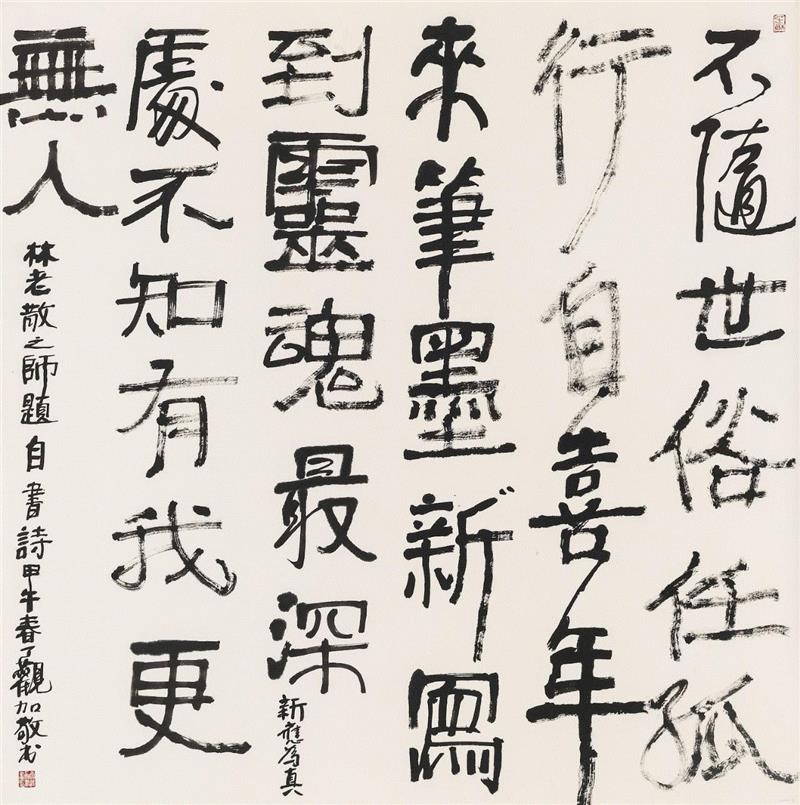 不隨世俗任孤
行自喜年
來筆墨新寫
到靈魂最深
新應為真
處不知有我更
無人
林老散之師題自書詩甲午春了觀加敬書